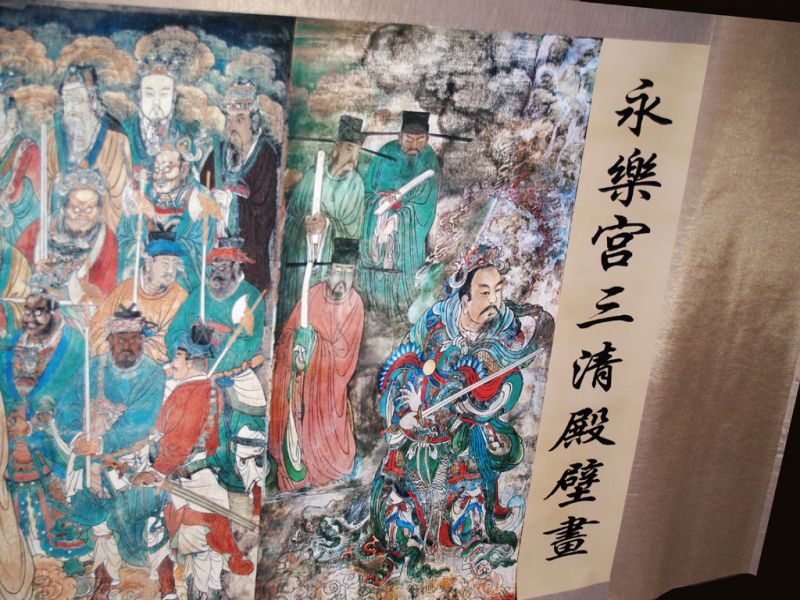 永樂宮三清殿壁畫